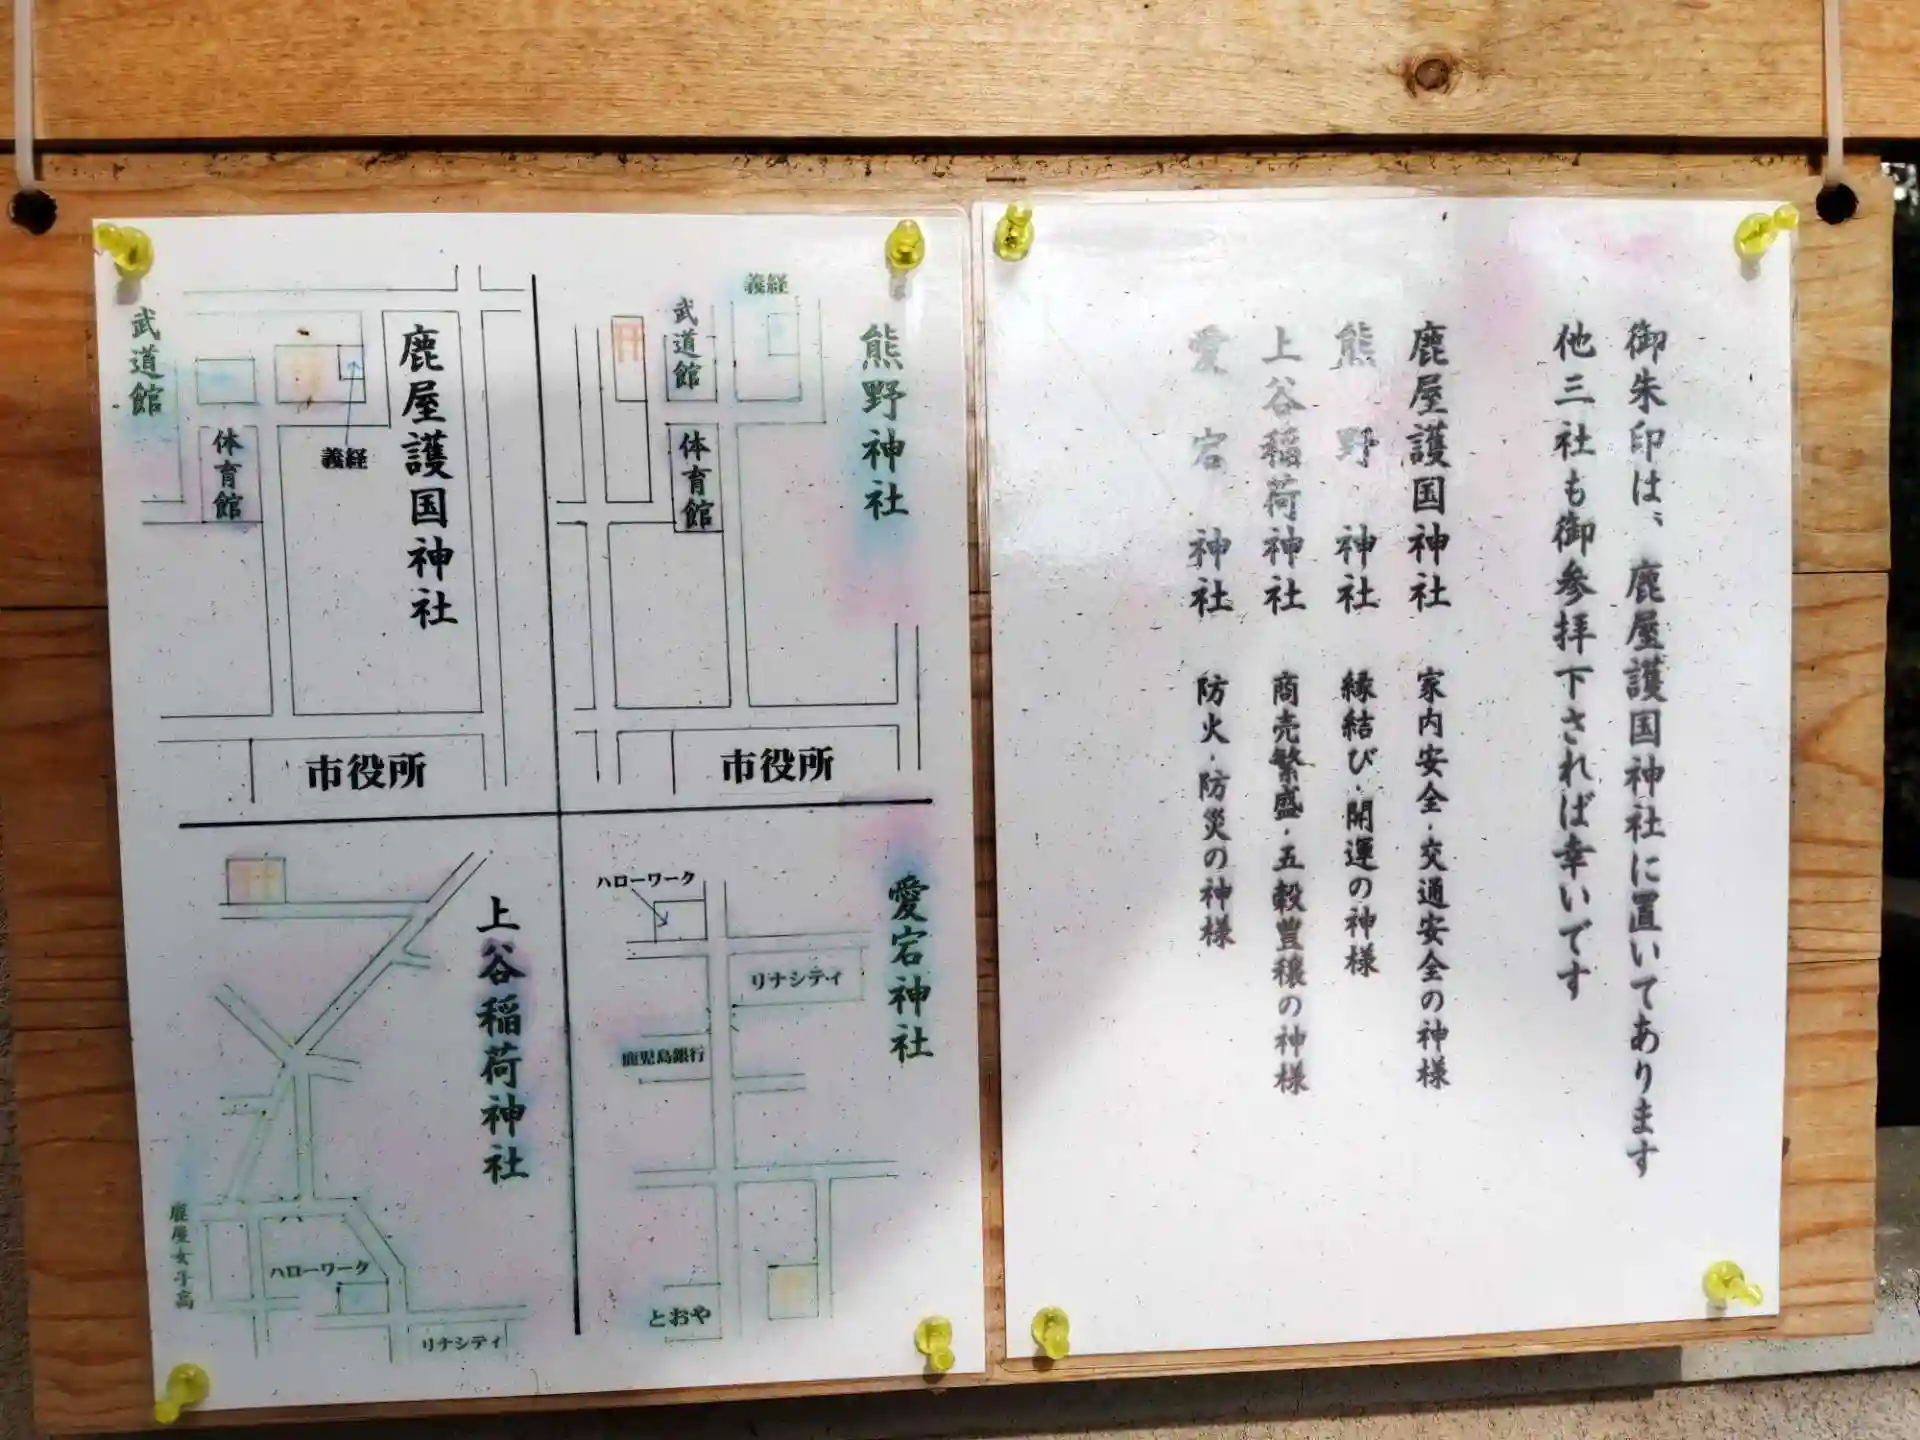 御朱印は、鹿屋護国神社に置いてあります
他三社も御参拝下されば幸いです
鹿屋護国神社 家内安全・交通安全の神様
熊野神社 縁結び・開運の神様
上谷稲荷神社 商売繁盛・五穀豊穣の神様
愛宕神社 防火・防災の神様
熊野神社
義経
武道館
体育館
市役所
鹿屋護国神社
義経
体育館
武道館
市役所
愛宕神社
ハローワーク
リナシティ
鹿児島銀行
とおや
上谷稲荷神社
鹿屋女子高
ハローワーク
リナシティ